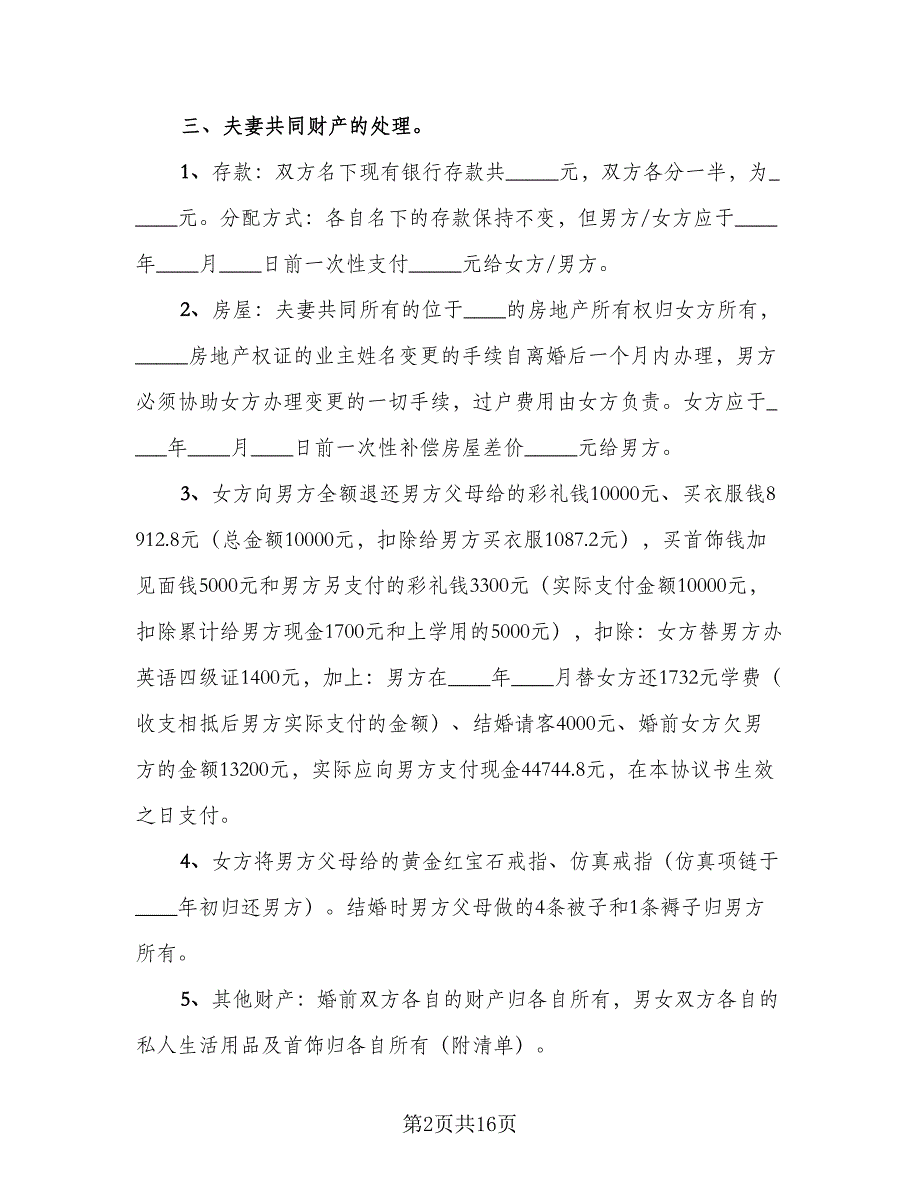 三、夫妻共同财产的处理。
1、存款：双方名下现有银行存款共_____元，双方各分一半，为_
____元。分配方式：各自名下的存款保持不变，但男方/女方应于____
年____月____日前一次性支付_____元给女方/男方。
2、房屋：夫妻共同所有的位于____的房地产所有权归女方所有，
_____房地产权证的业主姓名变更的手续自离婚后一个月内办理，男方
必须协助女方办理变更的一切手续，过户费用由女方负责。女方应于_
___年____月____日前一次性补偿房屋差价_____元给男方。
3、女方向男方全额退还男方父母给的彩礼钱10000元、买衣服钱8
912.8元（总金额10000元，扣除给男方买衣服1087.2元），买首饰钱加
见面钱5000元和男方另支付的彩礼钱3300元（实际支付金额10000元，
扣除累计给男方现金1700元和上学用的5000元），扣除：女方替男方办
英语四级证1400元，加上：男方在____年____月替女方还1732元学费（
收支相抵后男方实际支付的金额）、结婚请客4000元、婚前女方欠男
方的金额13200元，实际应向男方支付现金44744.8元，在本协议书生效
之日支付。
4、女方将男方父母给的黄金红宝石戒指、仿真戒指（仿真项链于
____年初归还男方）。结婚时男方父母做的4条被子和1条褥子归男方
所有。
5、其他财产：婚前双方各自的财产归各自所有，男女双方各自的
私人生活用品及首饰归各自所有（附清单）。
第2页共16页